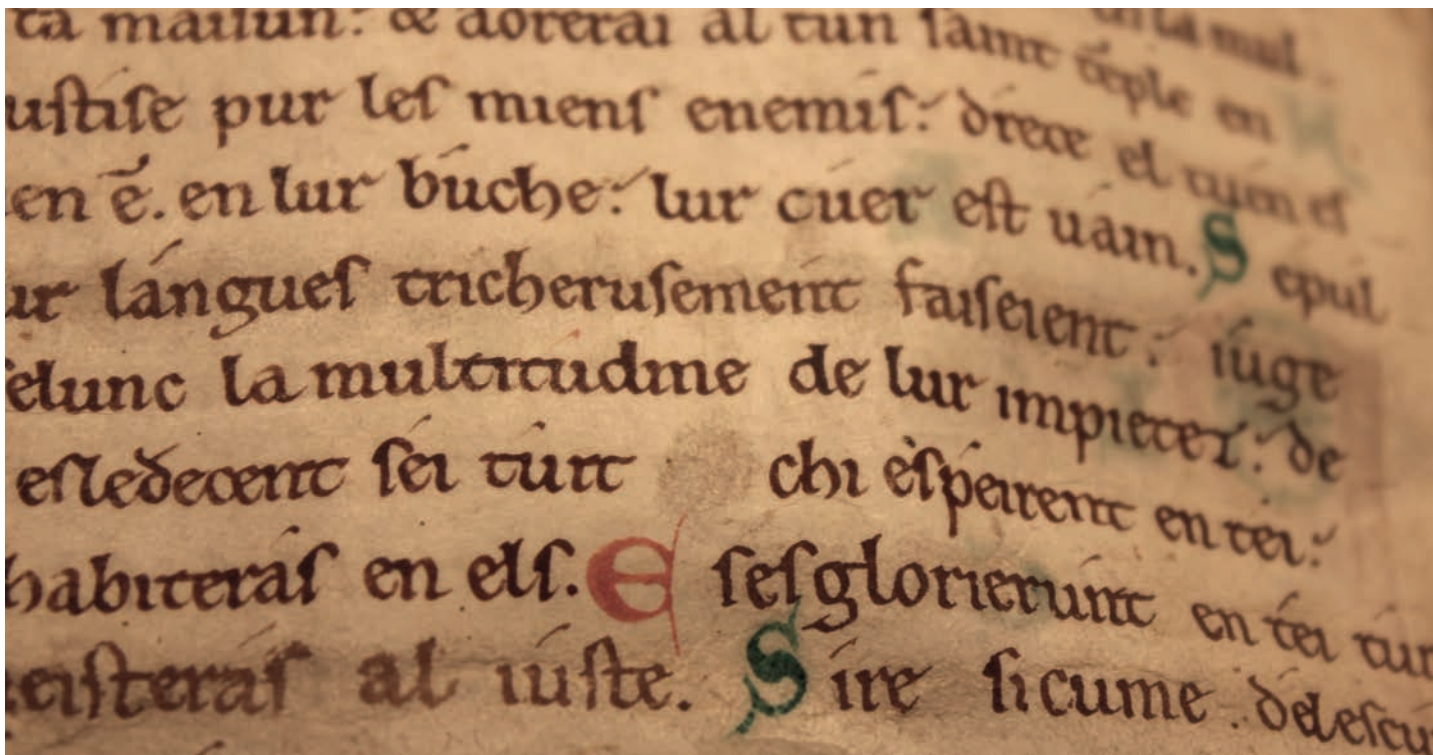 ta maisun. & aorerai al tun saint tēple en
ustise pur les miens enemis. drece el tuen es
en ē. en lur buche. lur cuer est uain. Sepul
ur langues tricherusement faiseient. iuge
selunc la multitudine de lur impietez. de
esledecent sei tuit chi espeirent en tei.
habiteras en els. E sesglorierunt en tei tuit
neisteras al iuste. Sire sicume delescu